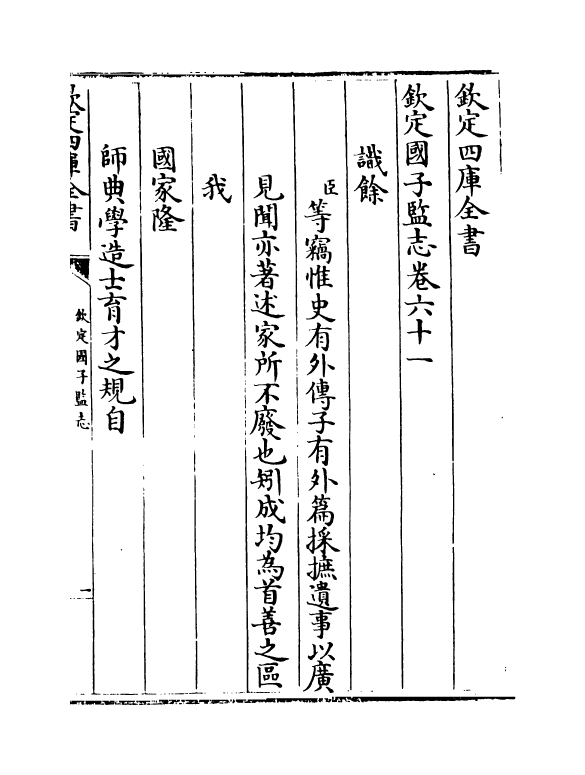 欽定四庫全書
欽定國子監志卷六十一
識餘
臣等竊惟史有外傳子有外篇採摭遺事以廣
見聞亦著述家所不廢也矧成均為首善之區
我
國家隆
師典學造士育才之規自
欽定四庫全書
欽定國子監志
一